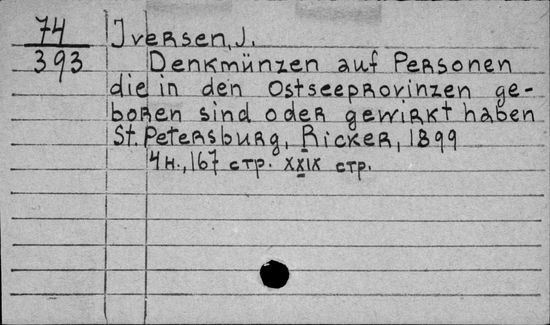 74
393
Iversen, J.
Denkmünzen auf Personen
die in den Ostseeprovinzen ge-
boren sind oder gewirkt haben
St. Petersburg, Ricker, 1899
4 н., 167 стр. XXIX стр.